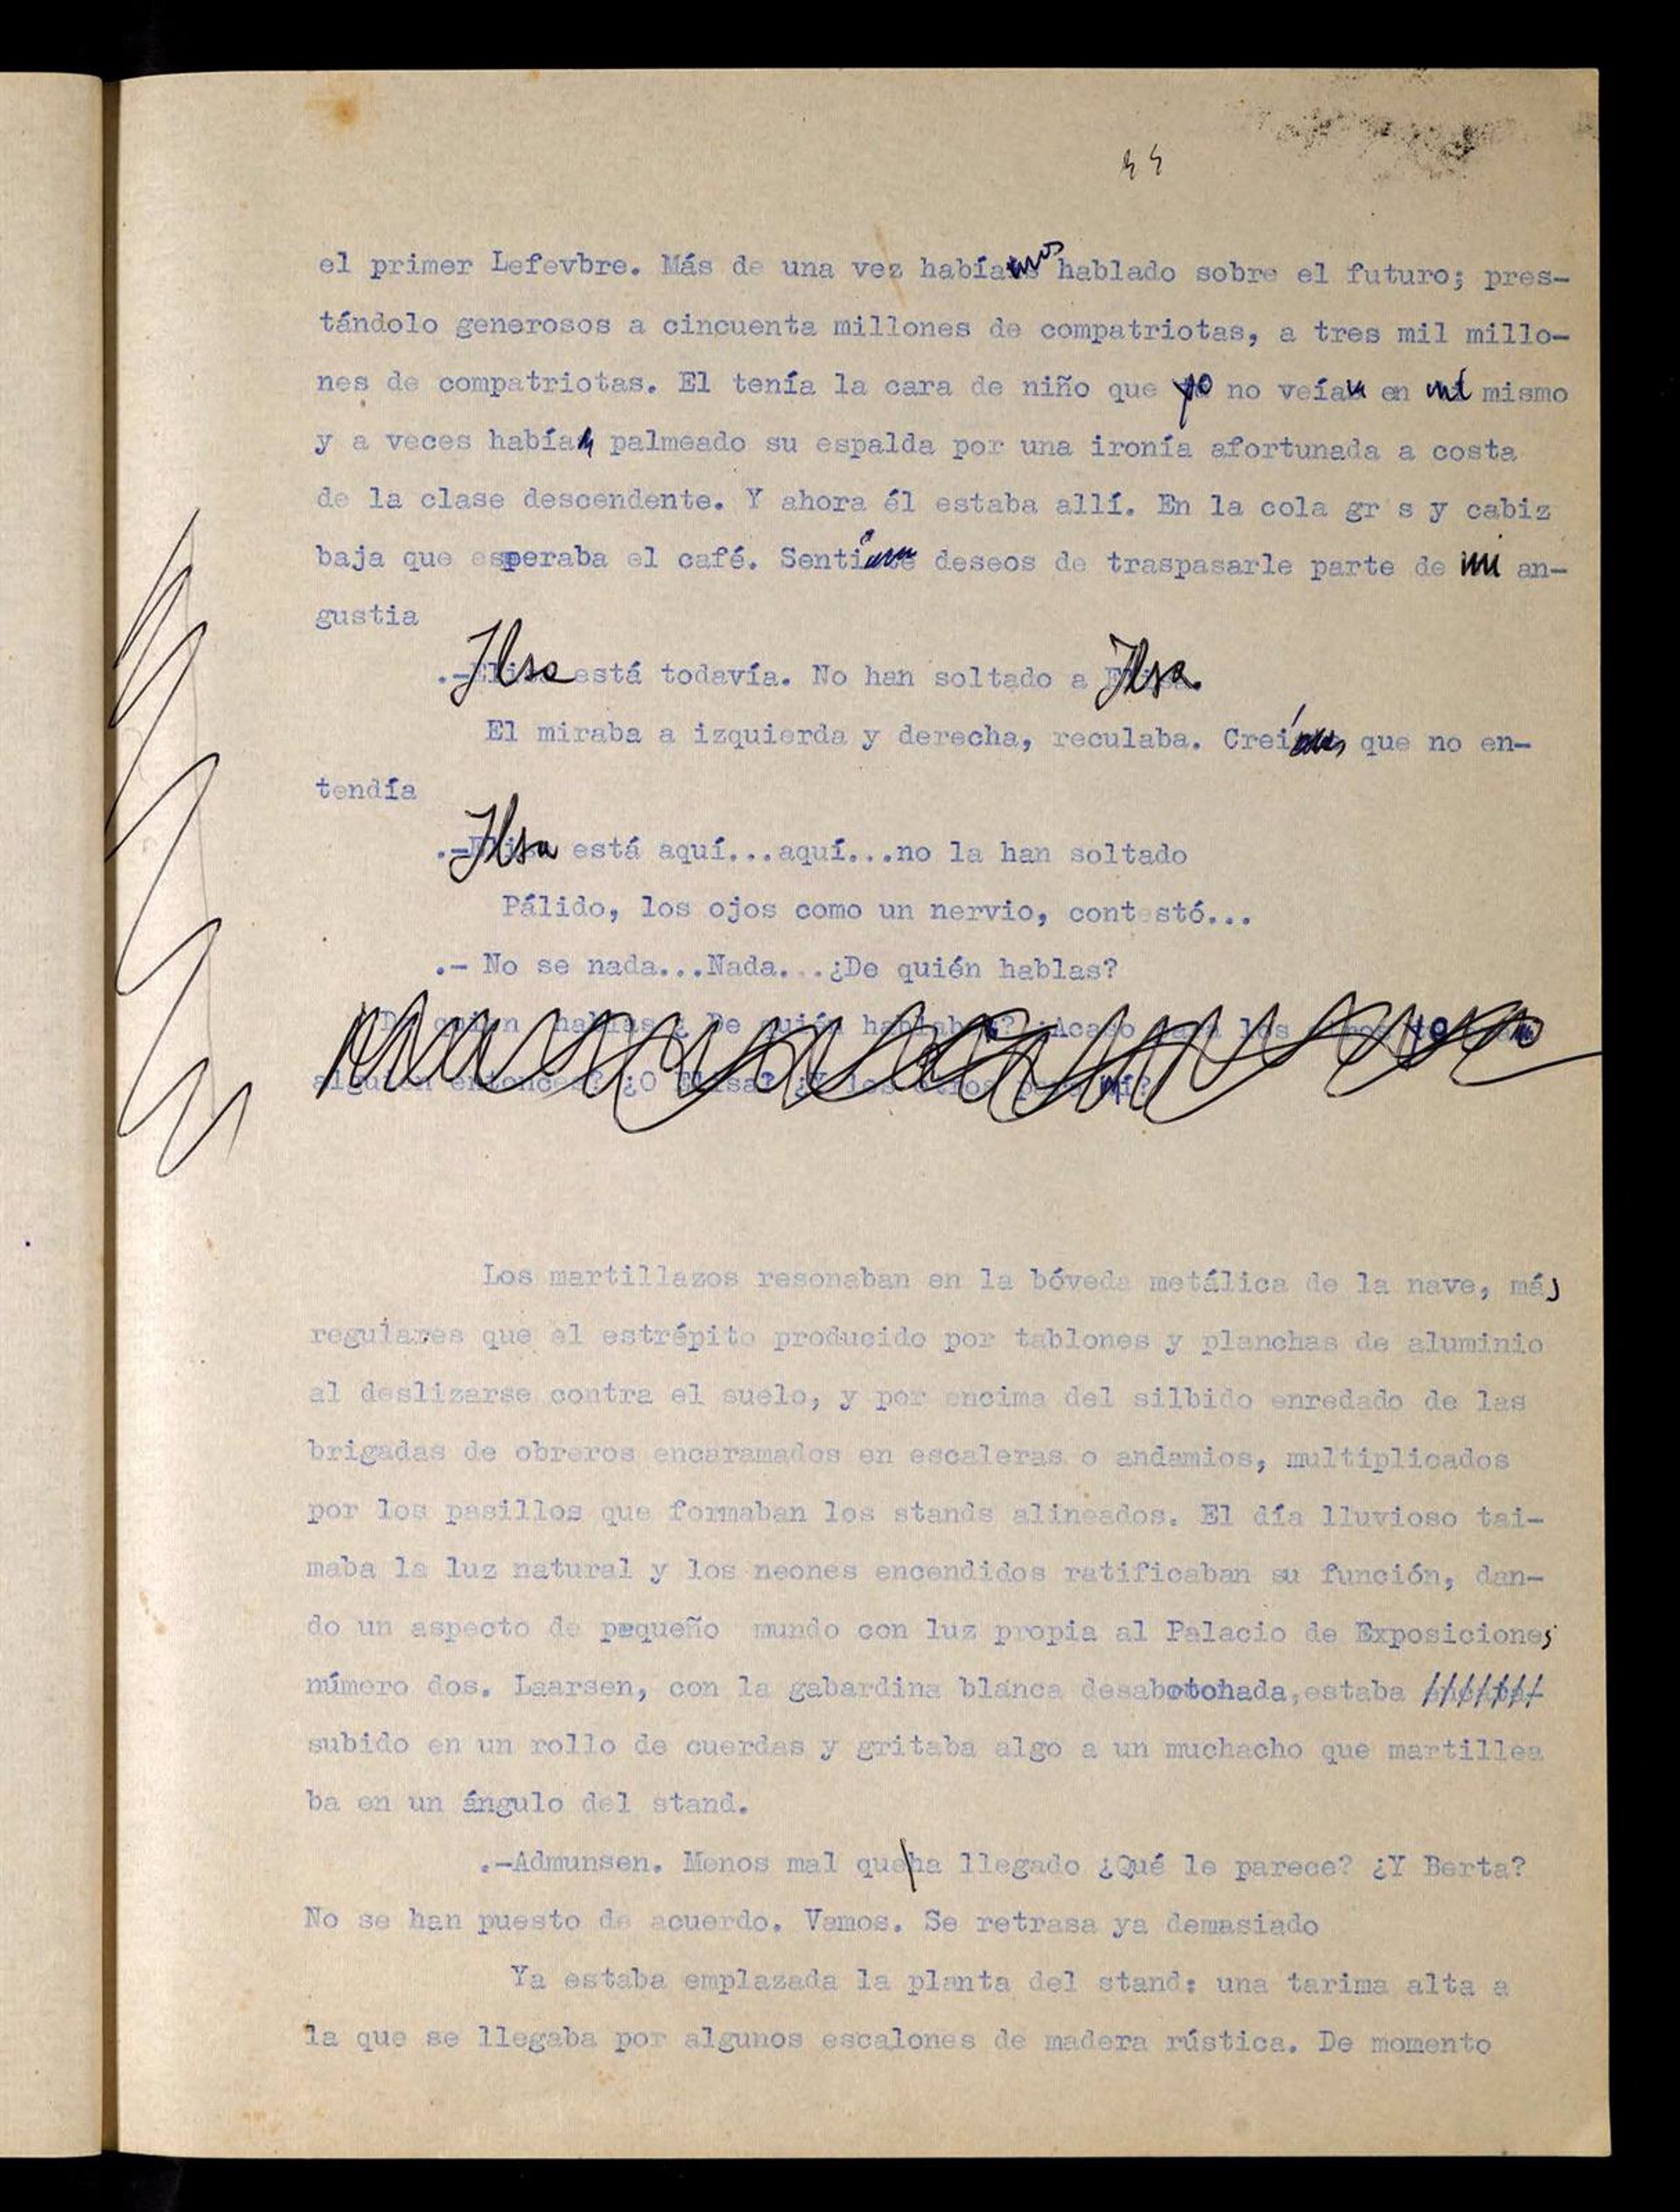 el primer Lefevbre. Más de una vez habíamos hablado sobre el futuro; pres-
tándolo generosos a cincuenta millones de compatriotas, a tres mil millo-
nes de compatriotas. El tenía la cara de niño que yo no veía en mí mismo
y a veces había palmeado su espalda por una ironía afortunada a costa
de la clase descendente. Y ahora él estaba allí. En la cola gr s y cabiz
baja que esperaba el café. Sentí deseos de traspasarle parte de mi an-
gustia
.-Ilsa está todavía. No han soltado a Ilsa.
El miraba a izquierda y derecha, reculaba. Creí que no en-
tendía
.-Ilsa está aquí...aquí...no la han soltado
Pálido, los ojos como un nervio, contestó...
.- No se nada...Nada...¿De quién hablas?
Los martillazos resonaban en la bóveda metálica de la nave, más
regulares que el estrépito producido por tablones y planchas de aluminio
al deslizarse contra el suelo, y por encima del silbido enredado de las
brigadas de obreros encaramados en escaleras o andamios, multiplicados
por los pasillos que formaban los stands alineados. El día lluvioso tai-
maba la luz natural y los neones encendidos ratificaban su función, dan-
do un aspecto de pequeño mundo con luz propia al Palacio de Exposiciones
número dos. Laarsen, con la gabardina blanca desabotohada, estaba
subido en un rollo de cuerdas y gritaba algo a un muchacho que martillea
ba en un ángulo del stand.
.-Admunsen. Menos mal que ha llegado ¿Qué le parece? ¿Y Berta?
No se han puesto de acuerdo. Vamos. Se retrasa ya demasiado
Ya estaba emplazada la planta del stand: una tarima alta a
la que se llegaba por algunos escalones de madera rústica. De momento